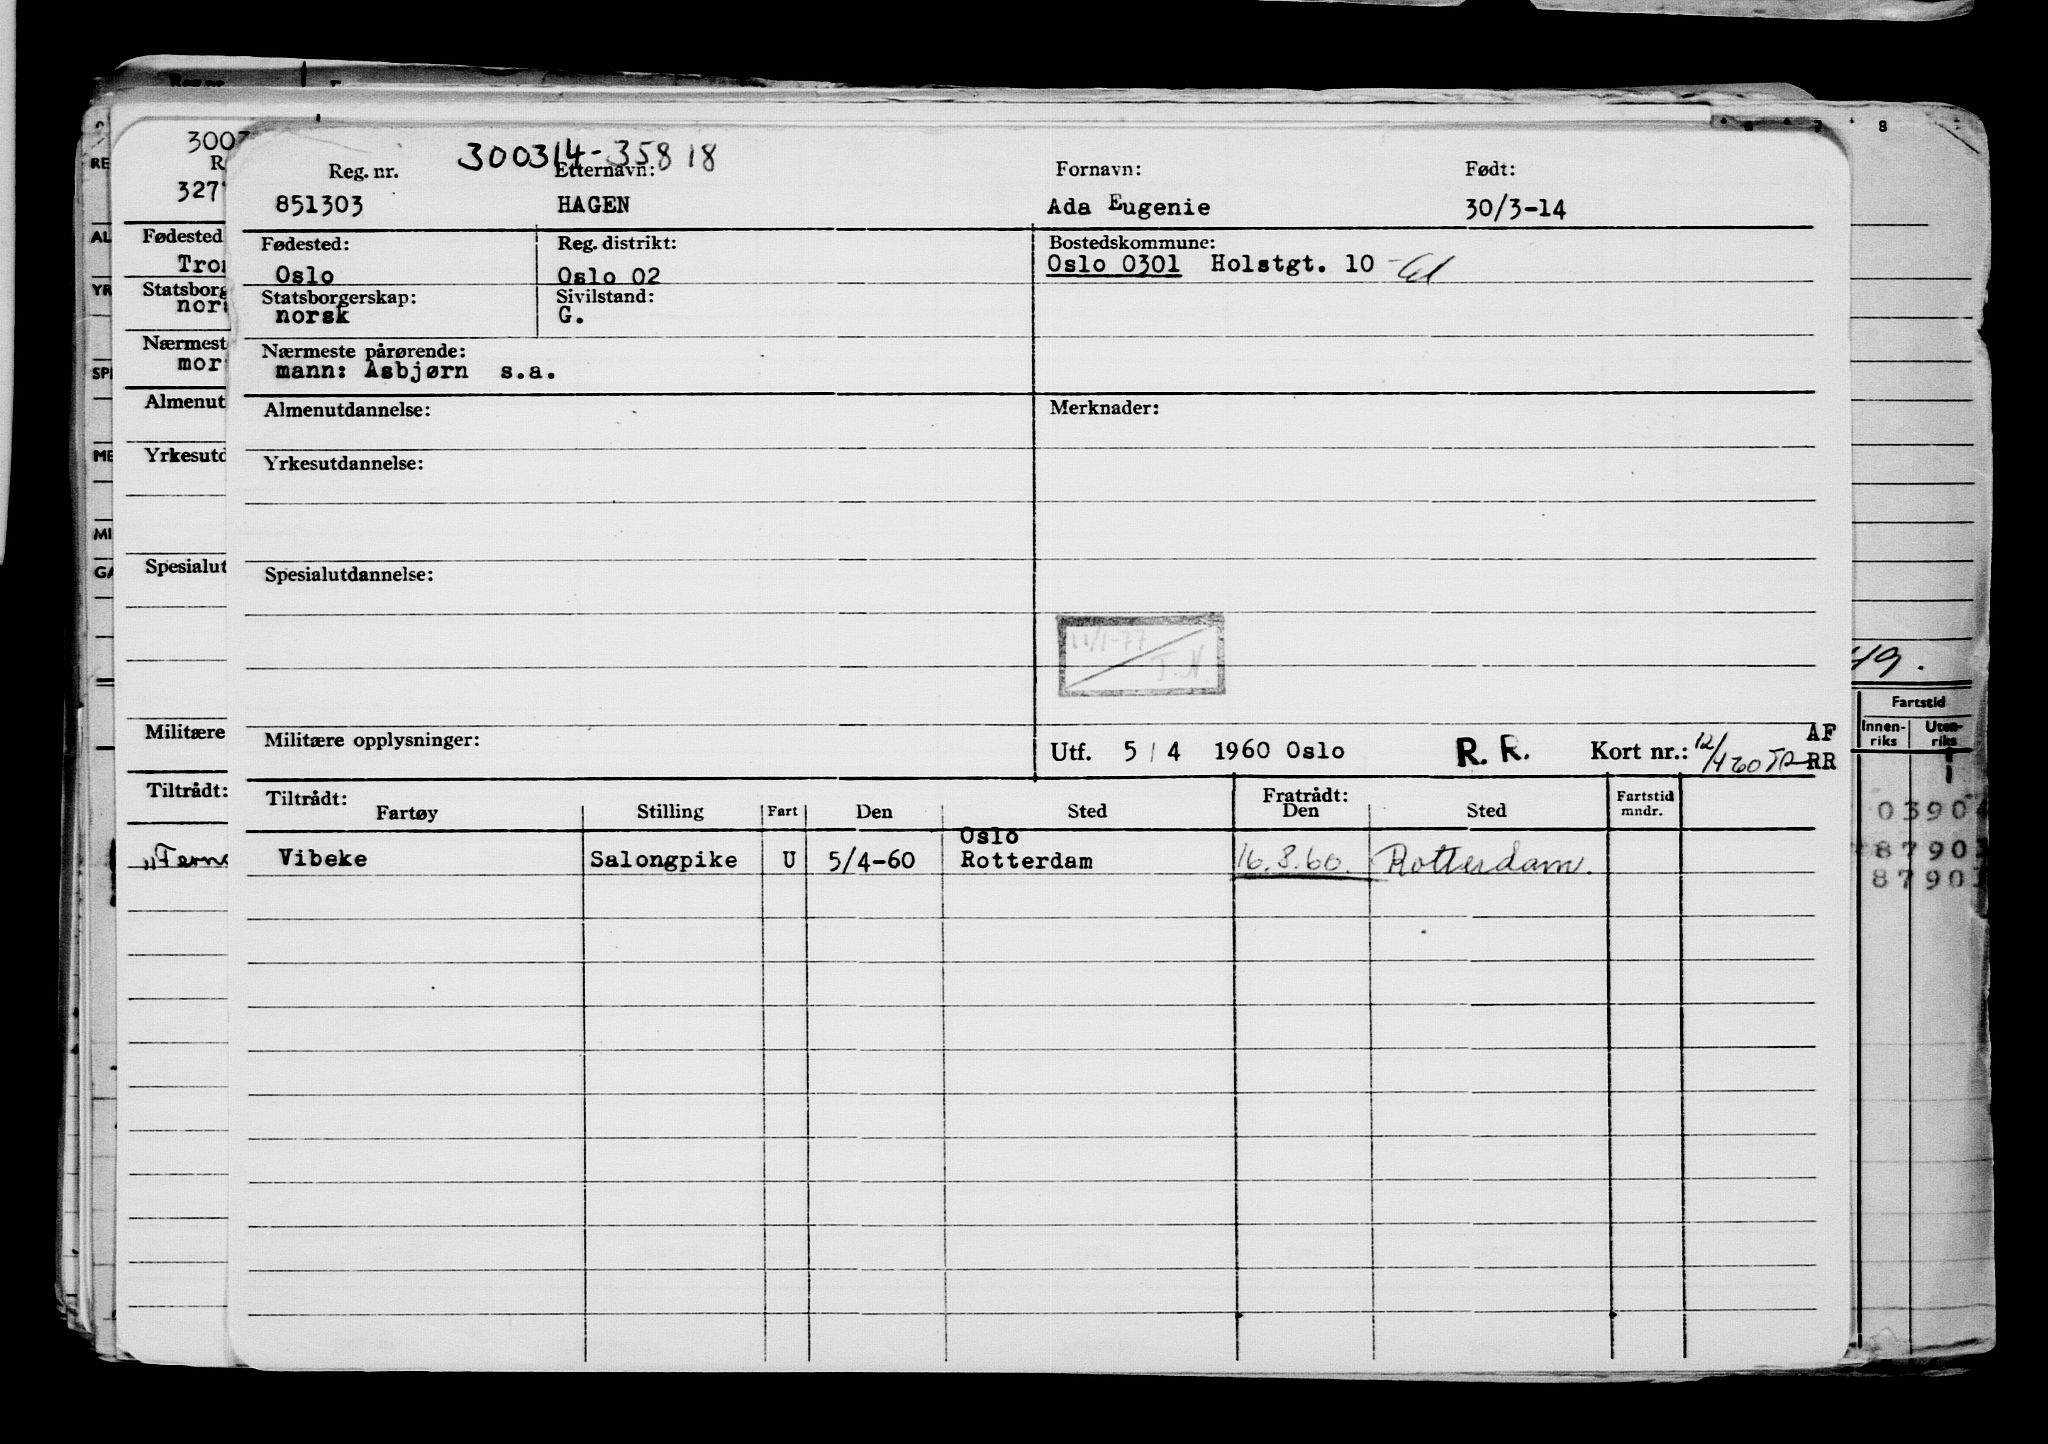 300314-35818
Reg. nr. Etternavn: Fornavn: Født:
851303 HAGEN Ada Eugenie 30/3-14
Fødested: Reg. distrikt: Bostedskommune:
Oslo Oslo 02 Oslo 0301 Holstgt. 10
Statsborgerskap: Sivilstand:
norsk G.
Nærmeste pårørende:
mann: Asbjørn s.a.
Almenutdannelse: Merknader:
Yrkesutdannelse:
Spesialutdannelse:
11/1-77
T.N.
Militære opplysninger: Utf. 5/4 1960 Oslo R. R. Kort nr.: 12/4 60 AF
RR
Tiltrådt: Fratrådt: Fartstid
Fartøy Stilling Fart Den Sted Den Sted mndr.
Oslo
Vibeke Salongpike U 5/4-60 Rotterdam 16.8.60. Rotterdam.
3003
327
Fødested
Tron
Statsborg
nors
Nærmest
mor
Almenut
Yrkesutd
Spesialut
Militære
Tiltrådt:
"Fern
RE
AL
YR
SPE
ME
MI
GA
8
49.
Fartstid
Innen-
riks
Uten-
riks
03904
87903
87903